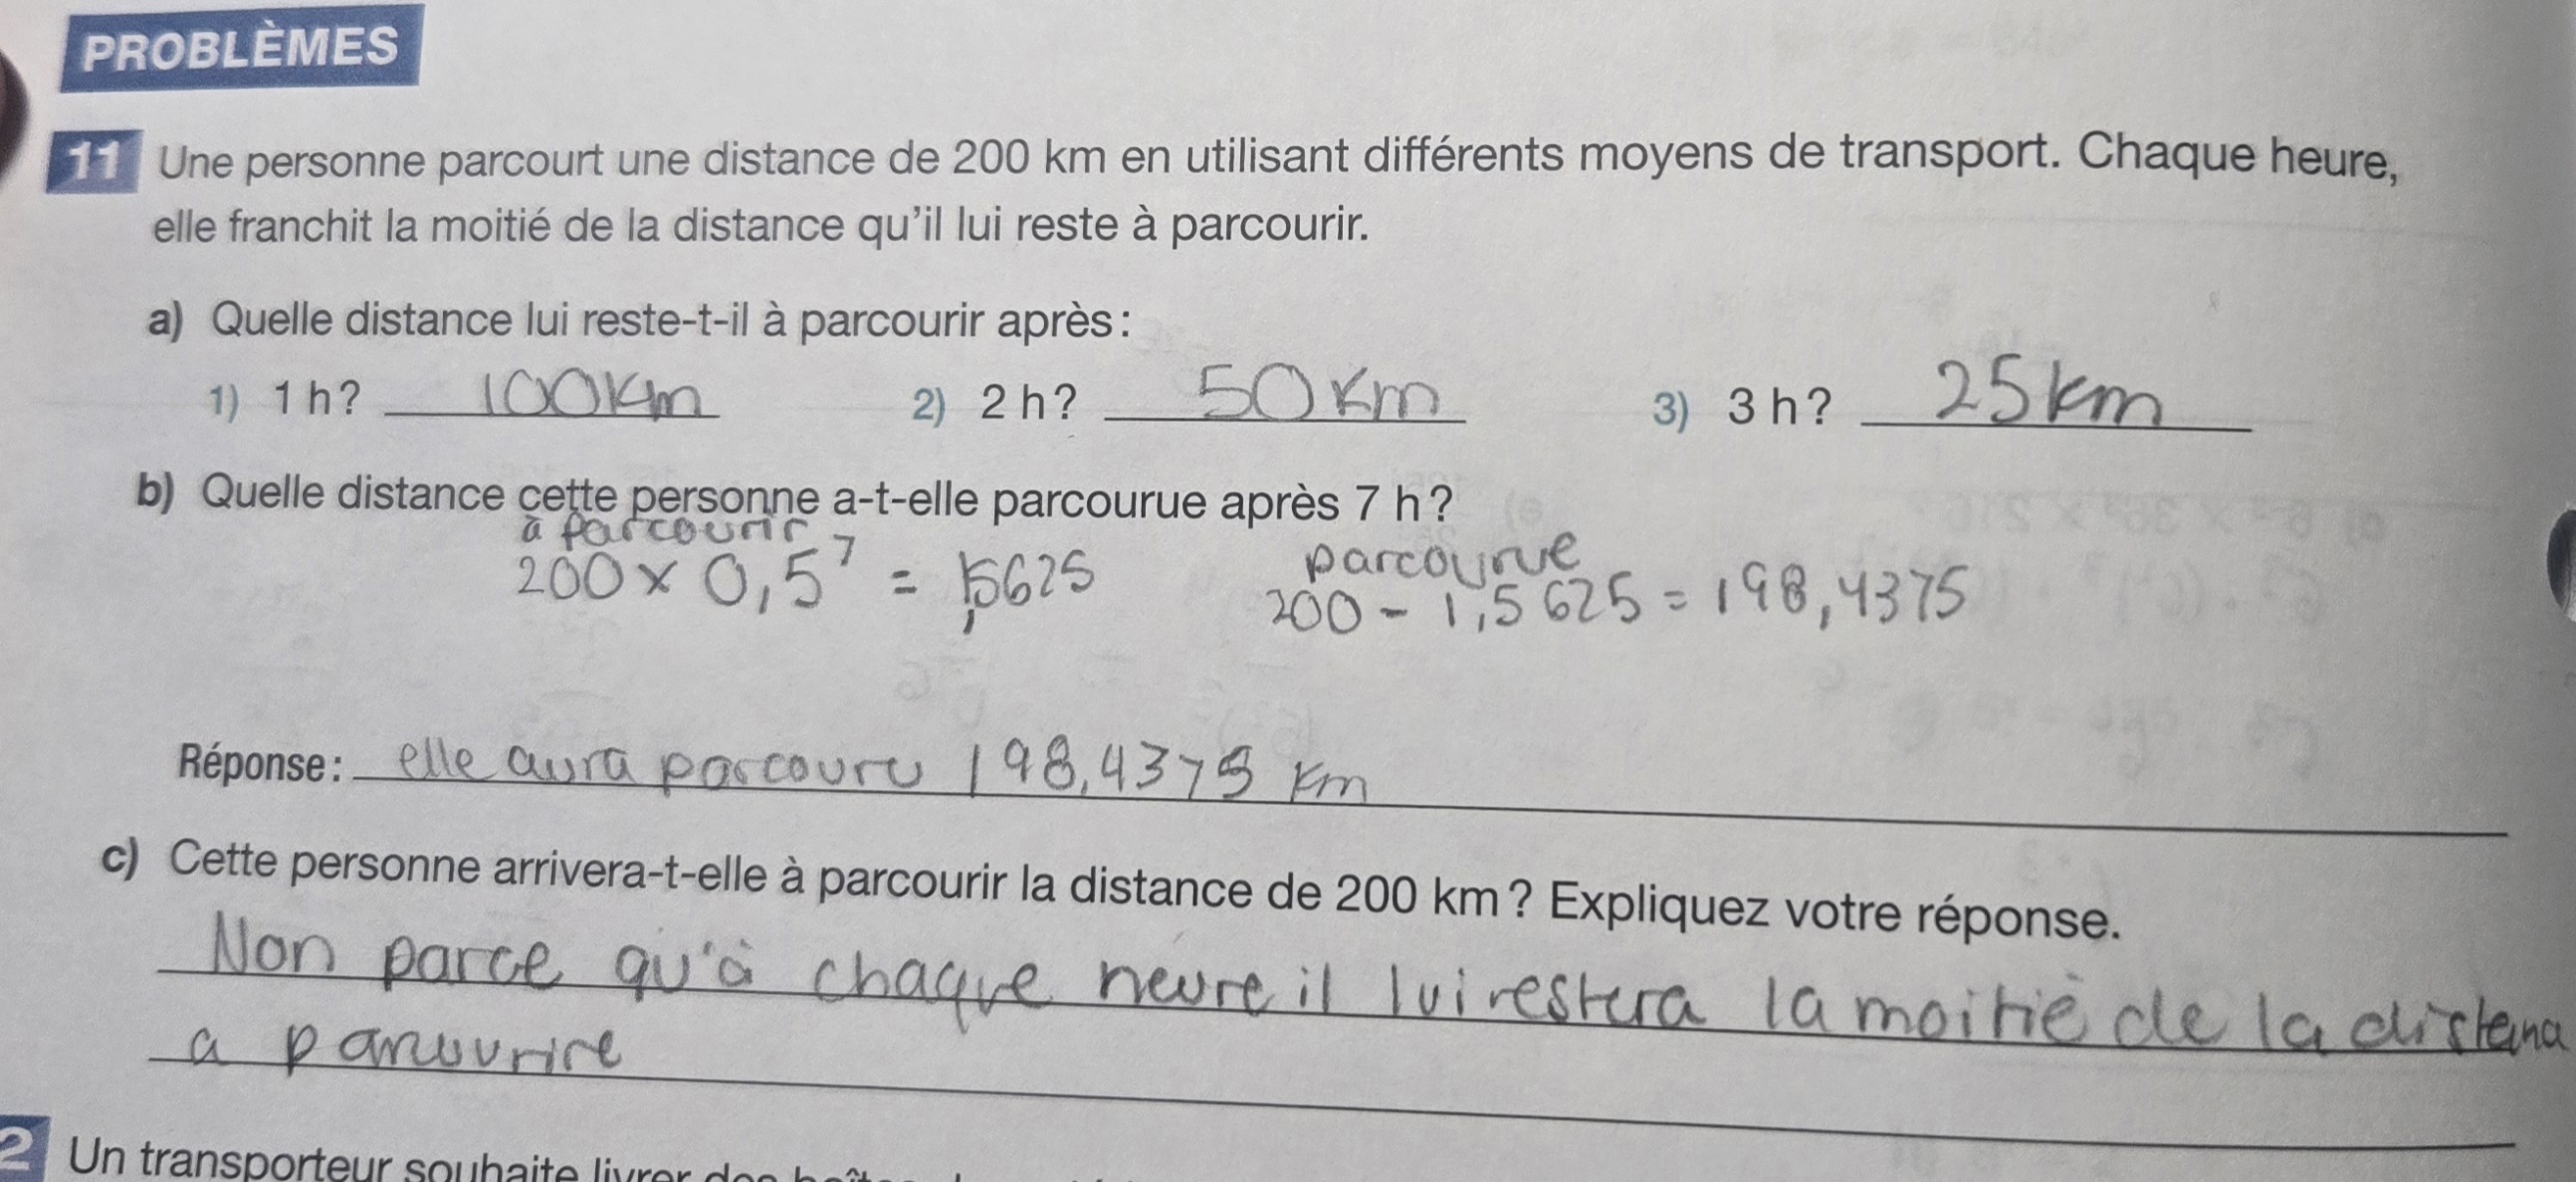 PROBLÈMES
11 Une personne parcourt une distance de 200 km en utilisant différents moyens de transport. Chaque heure,
elle franchit la moitié de la distance qu'il lui reste à parcourir.
a) Quelle distance lui reste-t-il à parcourir après :
1) 1 h ? 100 km 2) 2 h ? 50 km 3) 3 h ? 25 km
b) Quelle distance cette personne a-t-elle parcourue après 7 h ?
à parcourir parcourue
200 × 0,5⁷ = 1,5625 200 - 1,5625 = 198,4375
Réponse : elle aura parcouru 198,4375 km
c) Cette personne arrivera-t-elle à parcourir la distance de 200 km ? Expliquez votre réponse.
Non parce qu'à chaque heure il lui restera la moitié de la
a parcourire
2 Un transporteur souhaite livrer des